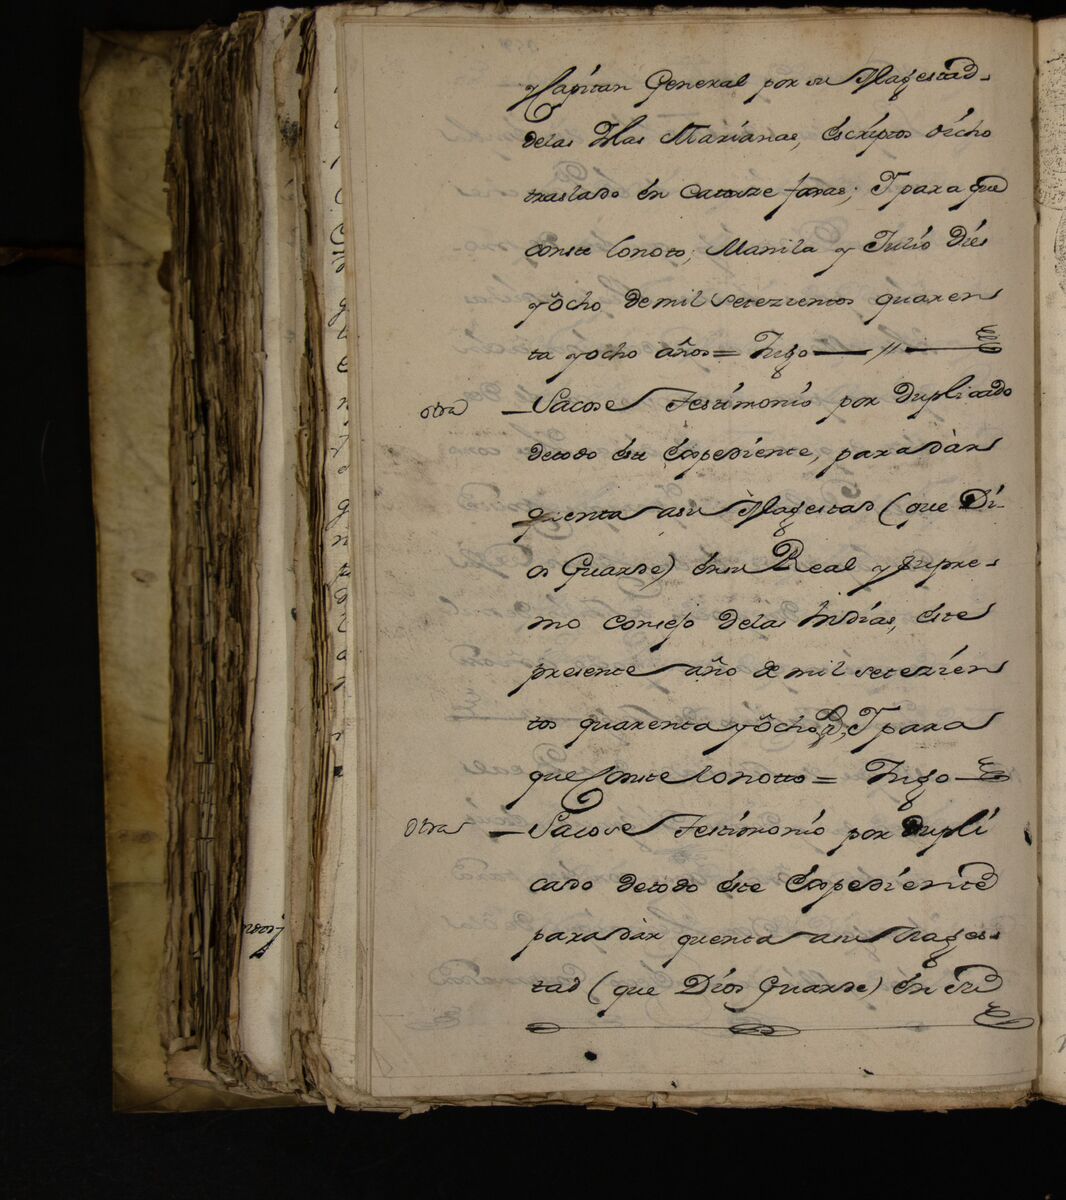 y Capitan General por su Magestad
delas Yslas Marianas, escriptos dicho
traslado en catorze foxas; Y para que
conste lo noto; Manila y Julio dies
y ôcho de mil setezientos quaren
ta y ocho años = Trigo — // —
otra — Sacose Testimonio por duplicado
de todo este Expediente, para dàr
quenta asu Magestad (que Di-
os Guarde) ensu Real y supre-
mo consejo delas Indias, este
presente año de mil setezien
tos quarenta y ôcho, Y para
que Conste lo notto = Trigo —
Otra — Sacose Testimonio por dupli
cado de todo este Expediente
para dàr quenta asu Mages-
tad (que Dios Guarde) en su